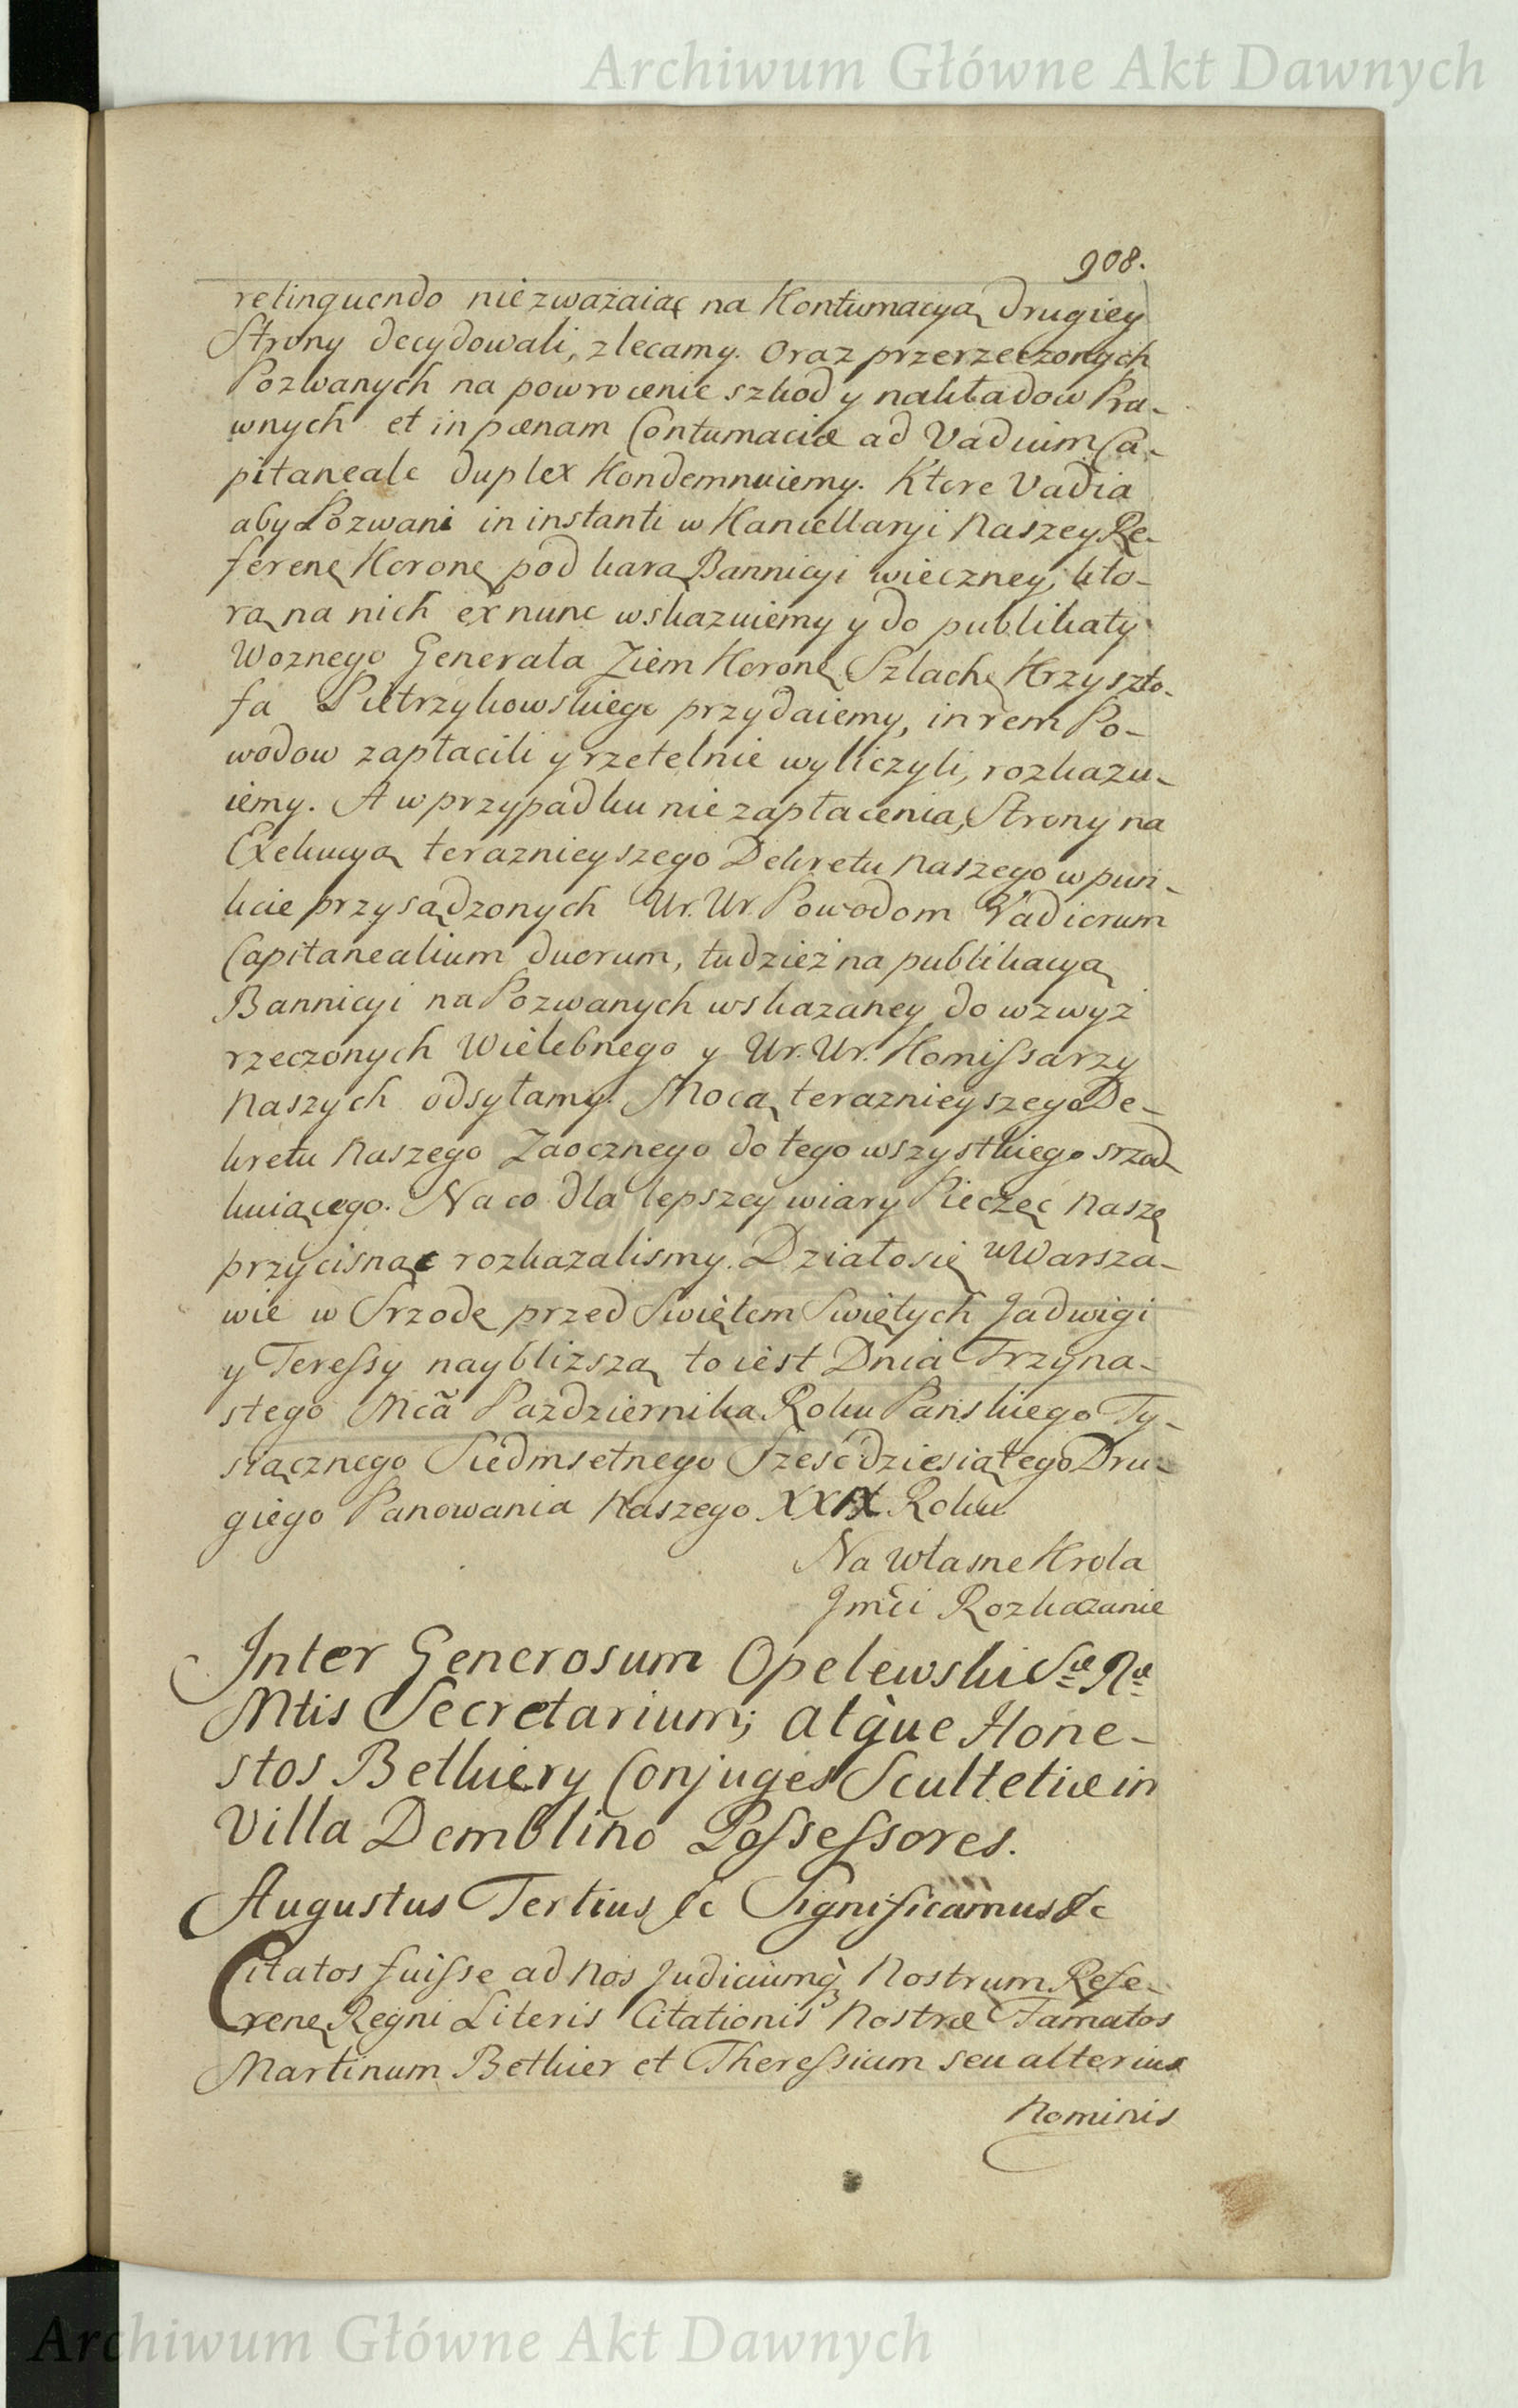 Archiwum Główne Akt Dawnych
908.
relinquendo niezważaiąc na Kontumacyą drugiey
Strony decydowali, zlecamy. Oraz przerzeczonych
Pozwanych na powrocenie szkod y nakładow Pra-
wnych et in pœnam Contumaciæ ad Vadium Ca-
pitaneale duplex Kondemnuiemy. Ktore Vadia
aby Pozwani in instanti w Kancellaryi Naszey Re-
ferenę Koronę pod karą Bannicyi wieczney, kto-
rą na nich ex nunc wskazuiemy y do publikaty
Woznego Generała Ziem Koronę Szlachę Krzyszto-
fa Pietrzykowskiego przydaiemy, in rem Po-
wodow zapłacili y rzetelnie wyliczyli, rozkazu-
iemy. A w przypadku nie zapłacenia, Strony na
Exekucyą teraznieyszego Dekretu Naszego w pun-
kcie przysądzonych Ur. Ur. Powodom Vadiorum
Capitanealium duorum, tudzież na publikacyą
Bannicyi na Pozwanych wskazaney do wzwyż
rzeczonych Wielebnego y Ur. Ur. Komissarzy
Naszych odsyłamy. Mocą teraznieyszego De-
kretu Naszego Zaocznego do tego wszystkiego srzod-
kuiącego. Na co dla lepszey wiary Pieczęć Naszę
przycisnąc rozkazalismy. Działo się w Warsza-
wie w Srzodę przed Swiętem Swiętych Jadwigi
y Teressy naybliższą to iest Dnia Trzyna-
stego Mca Pazdziernika Roku Panskiego Ty-
siącznego Siedmsetnego Szescdziesiątego Dru-
giego Panowania Naszego XXIX Roku
Na własne Krola
Jmci Rozkazanie
Inter Generosum Opelewski Sæ Ræ
Mtis Secretarium; atque Hone-
stos Bethiery Conjuges Scultetiæ in
Villa Demblino Possessores.
Augustus Tertius &c Significamus &c
Citatos fuisse ad Nos Judiciumq; Nostrum Refe-
renę Regni Literis Citationis Nostræ Famatos
Martinum Bethier et Theressiam seu alterius
Nominis
Archiwum Główne Akt Dawnych